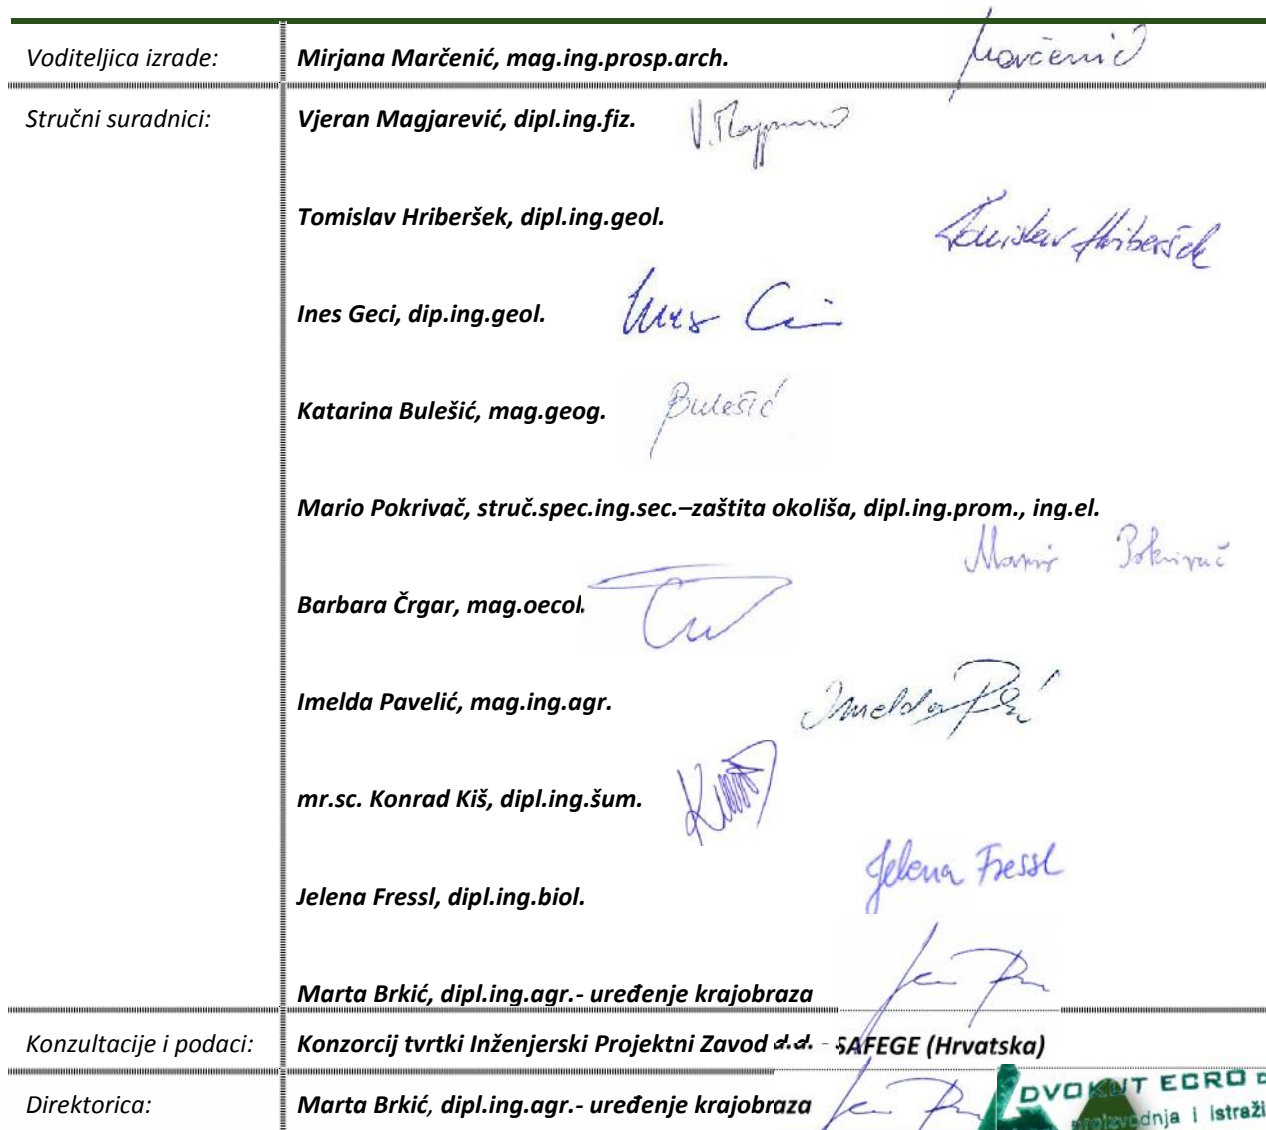 Voditeljica izrade: Mirjana Marčenić, mag.ing.prosp.arch. Marčenić
Stručni suradnici: Vjeran Magjarević, dipl.ing.fiz.
Tomislav Hriberšek, dipl.ing.geol.
Tomislav Hriberšek
Ines Geci, dip.ing.geol. Ines
Katarina Bulešić, mag.geog. Bulešić
Mario Pokrivač, struč.spec.ing.sec.–zaštita okoliša, dipl.ing.prom., ing.el.
Mario Pokrivač
Barbara Črgar, mag.oecol.
Imelda Pavelić, mag.ing.agr. Imelda
mr.sc. Konrad Kiš, dipl.ing.šum.
Jelena Fressl
Jelena Fressl, dipl.ing.biol.
Marta Brkić, dipl.ing.agr.- uređenje krajobraza
Konzultacije i podaci: Konzorcij tvrtki Inženjerski Projektni Zavod d.d. - SAFEGE (Hrvatska)
DVOKUT ECRO d
proizvodnja i istraži
Direktorica: Marta Brkić, dipl.ing.agr.- uređenje krajobraza